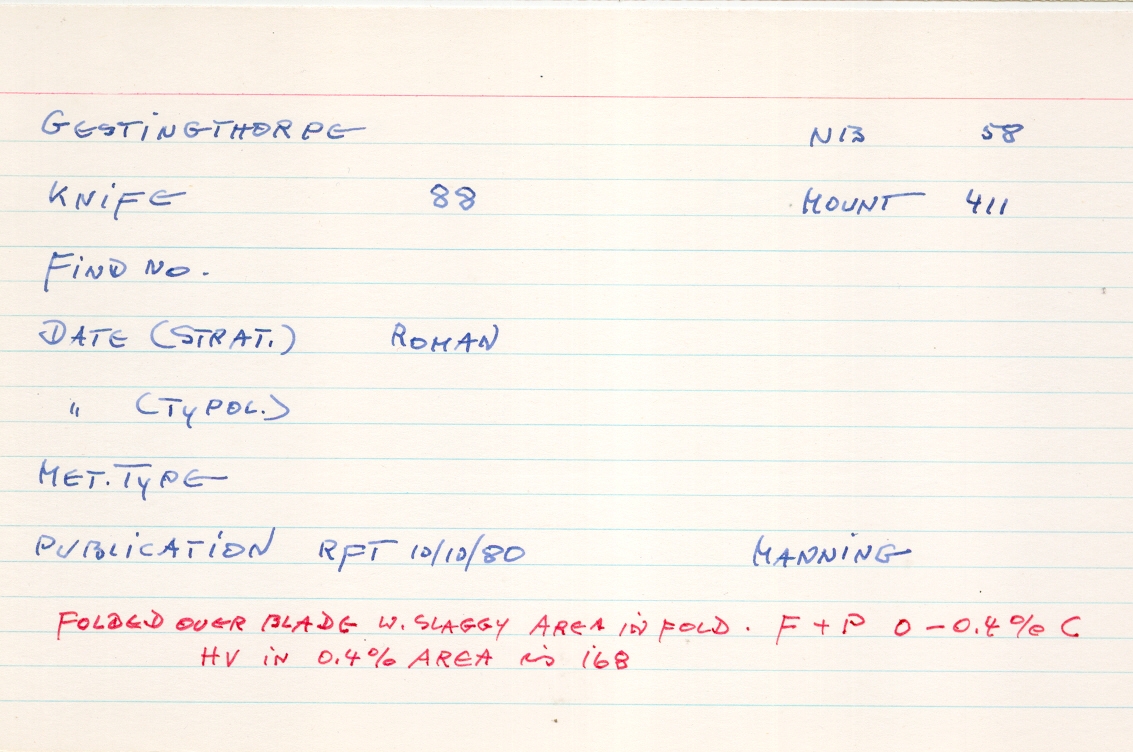 GESTINGTHORPE NB 58
KNIFE 88 MOUNT 411
FIND NO.
DATE (STRAT.) ROMAN
" (TYPOL.)
MET. TYPE
PUBLICATION RPT 10/10/80 MANNING
FOLDED OVER BLADE W. SLAGGY AREA IN FOLD. F + P 0 - 0.4% C
HV IN 0.4% AREA IS 168